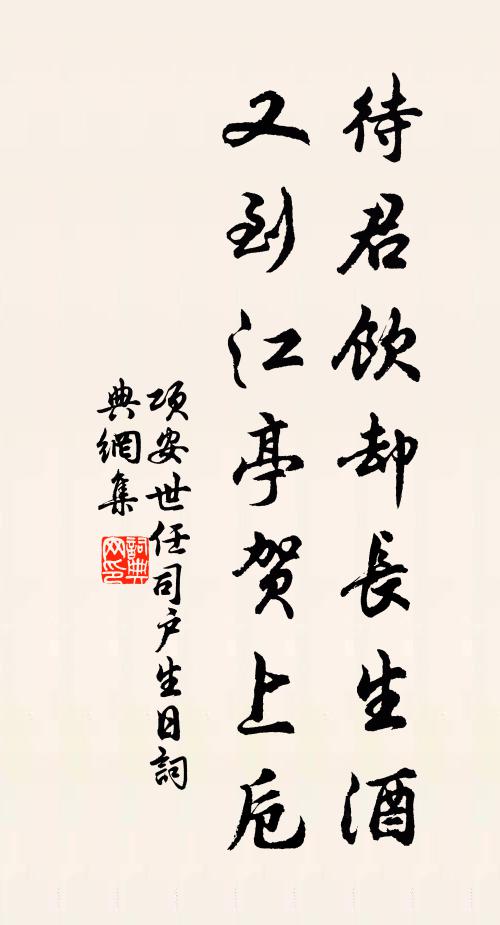 待君飲却長生酒
又到江亭賀上卮
項安世任司戶生日詞
典網集
詞典網印